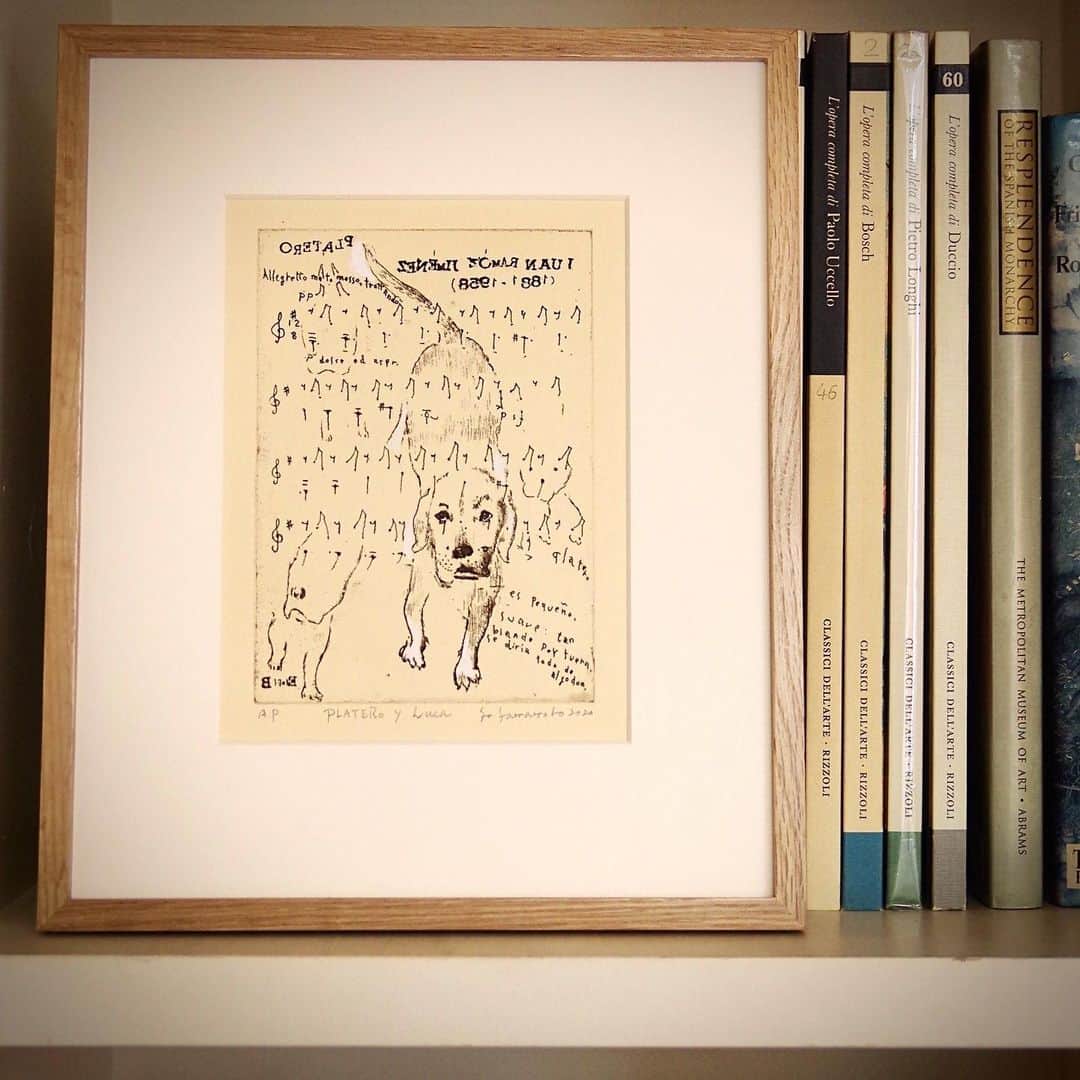 PLATERO
JUAN RAMÓN JIMÉNEZ
(1881-1958)
Allegretto molto mosso,
pp
12
8
p dolce ed
es pequeño,
suave; tan
blando por fuera,
se diría todo de
algodón,
B
A.P PLATERO y Luca 2020
L'opera completa di Paolo Uccello
46
CLASSICI DELL'ARTE · RIZZOLI
2
L'opera completa di Bosch
CLASSICI DELL'ARTE · RIZZOLI
L'opera completa di Pietro Longhi
CLASSICI DELL'ARTE · RIZZOLI
60
L'opera completa di Duccio
CLASSICI DELL'ARTE · RIZZOLI
RESPLENDENCE
OF THE SPANISH MONARCHY
THE METROPOLITAN MUSEUM OF ART • ABRAMS